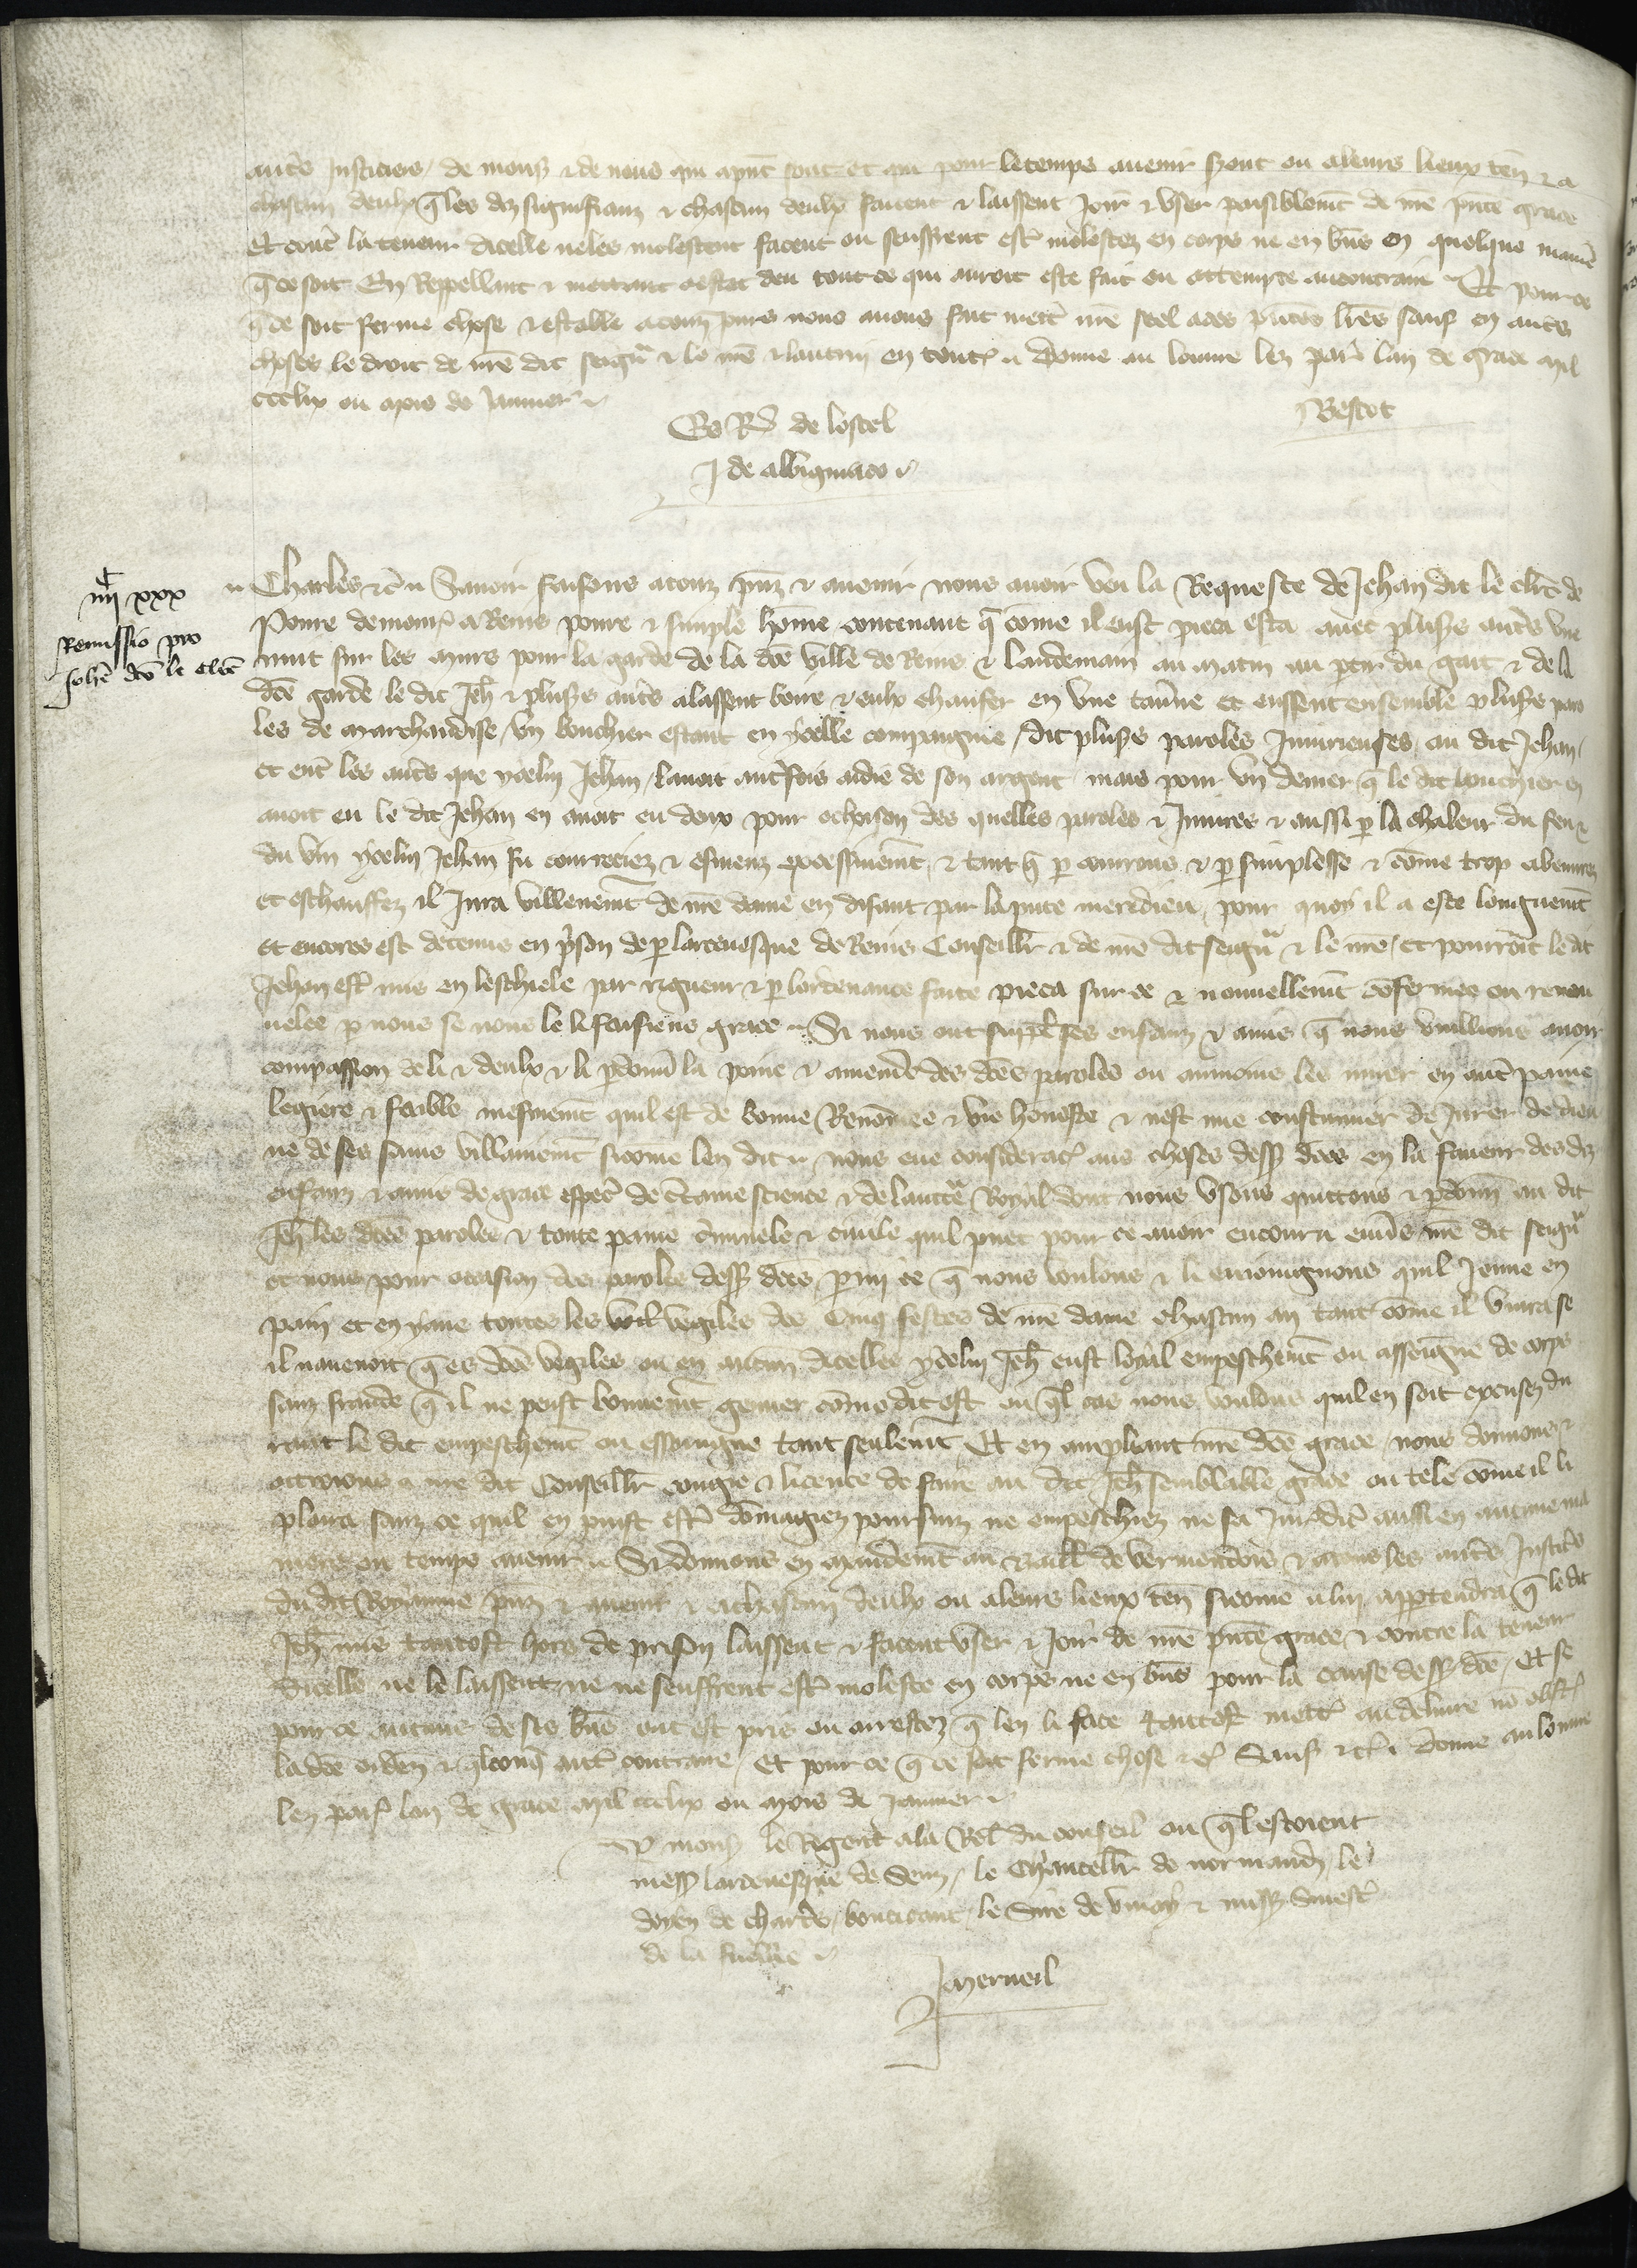 autres Justiciers de mons & de nous qui apnt sont et qui pour le temps avenir seront ou a leurs lieux ten & a
chascun deulx q les diz signifianz & chascun deulx facent & laissent Joir & user paisiblemt de nre pnte grace
Et contre la teneur dicelle ne les molestent facent ou seuffrent estre molestez en corps ne en biens en quelque maniere
q ce soit En Rappellant & mettant a estat deu tout ce qui auroit este fait ou attempte au contraire Et pour ce
q ce soit ferme chose & estable a touz jours nous avons fait mettre nre seel a ces pntes lres sauf en autres
choses le droit de nre dit seigr & le nre & lautrui en toutes Donne au louvre lez Paris lan de grace mil
ccclix ou mois de Janvier
Es Req de lostel
Bescot
J de albigniaco
iiijc xxx
Remissio pro
Johe dco le clerc
Charles &c Savoir faisons a touz pnz & avenir nous avoir veu la Requeste de Jehan dit le clerc de
Poure demour a Reins poure & simple home contenant q come il eust pieca este avec plusrs autres une
nuit sur les murs pour la garde de la dce ville de Reins & landemain au matin au ptir du gait & de la
dce garde le dit Jeh & plusrs autres alassent boire & eulx chaufer en une taverne et eussent ensemble plusrs paro
les de marchandise un bouchier estant en ycelle compaignie dit plusrs paroles Injurieuses au dit Jehan
et entre les autres que ycelui Jehan lavoit autrefois aidie de son argent mais pour un denier q le dit bouchier en
avoit eu le dit Jehan en avoit eu deux pour ochoison des quelles paroles & Injures & aussi p la chaleur du feu &
du vin ycelui Jehan fu courrociez & esmeuz excessivemt & tant q p courrous & p simplesse & come trop abeuvrez
et eschauffez il Jura villenemt de nre dame en disant par la pute meredieu pour quoy il a este longuemt
et encores est detenus en prison de p larcevesque de Reins Conseillr & de nre dit seigr & le nre et pourroit le dit
Jehan estre mis en leschiele par rigueur & p lordenance faite pieca sur ce & nouvellemt confermee ou renou
velee p nous se nous ne li faisiens grace Si nous ont supplie ses enfanz & amis q nous vuillions avoir
compassion de li & deulx & li pdoner la poine & amende des dces paroles ou aumoins les muer en autre paine
legiere & foible mesmemt quil est de bonne Renomee & vie honeste & nest mie coustumier de Jurer de dieu
ne de ses sains villainemt si come len dit nous eue consideracion aus choses dessus dces en la faveur des diz
enfanz & amis de grace especial de certaine science & de lauctorite Royal dont nous usons quittons & pdonons au dit
Jeh les dces paroles & toute paine criminele & civile quil puet pour ce avoir encouru envers nre dit seigr
et nous pour occasion des paroles dessus dces p mi ce q nous voulons & li enioingnons quil Jeune en
pain et en yaue toutes les vegiles des Cinq festes de nre dame chascun an tant come il vivra se
il navenoit q es dces vegiles ou en aucun dicelles ycelui Jeh eust loyal empeschemt ou essoingne de corps
sanz fraude q il ne peust bonnemt geuner come dit est ou quel cas nous voulons quil en soit excusez du
rant le dit empeschemt ou essoingne tant seulemt Et en ampliant nre dce grace nous donnons &
ottroions a nre dit Conseillr congie & licence de faire au dit Jeh semblable grace ou tele come il li
plaira sanz ce quil en puist estre domagiez poursuiz ne empeschiez ne sa Juridicion aussi en aucune ma
niere ou temps avenir Si donnons en mandemt au bailli de vermendois & a tous les autres Justiciers
du dit Royaume pnz & avenir & a chascun deulx ou a leurs lieux ten si come a lui appartendra q le dit
Jeh mis tantost hors de prison laissent & facent user & Joir de nre pnte grace & contre la teneur
dicelle ne le laissent ne ne seuffrent estre moleste en corps ne en biens pour la cause dessus dce Et se
pour ce aucuns de ses biens ont est pris ou arrestez q len li face tantost mettre au delivre non obstant
la dce orden & qlconq autre contraire Et pour ce q ce soit ferme chose &c Sauf &c Donne au louvre
lez paris lan de grace mil ccclix ou mois de janvier
p mons le Regent a la Rel du conseil ou ql estoient
mess larcevesque de Senz le Chancellr de normandie le
doyen de chartres boucicaut le Sire de vinay & mess Silvestre
de la fueillee
J Merueil